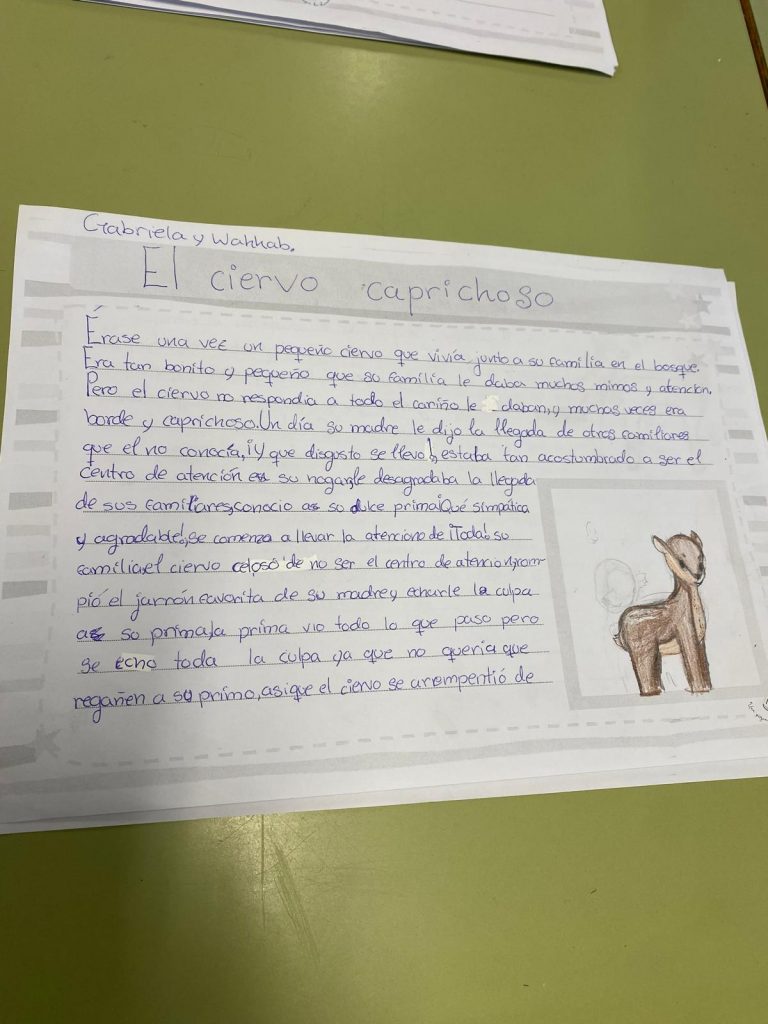 Gabriela y Wahhab.
El ciervo caprichoso
Érase una vez un pequeño ciervo que vivía junto a su familia en el bosque.
Era tan bonito y pequeño que su familia le daba muchos mimos y atencion.
Pero el ciervo no respondia a todo el cariño le daban, y muchas veces era
borde y caprichoso. Un día su madre le dijo la llegada de otros familiares
que el no conocía, ¡Y que disgusto se llevo!, estaba tan acostumbrado a ser el
centro de atención en su hogar, le desagradaba la llegada
de sus familiares, conocio a su dulce prima ¡Qué simpática
y agradable!, se comenzo a llevar la atencion de ¡Toda! su
familia, el ciervo celoso de no ser el centro de atencion, rom-
pió el jarrón favorita de su madre y echarle la culpa
a su prima, la prima vio todo lo que paso pero
se echo toda la culpa ya que no queria que
regañen a su primo, asi que el ciervo se arrompentió de